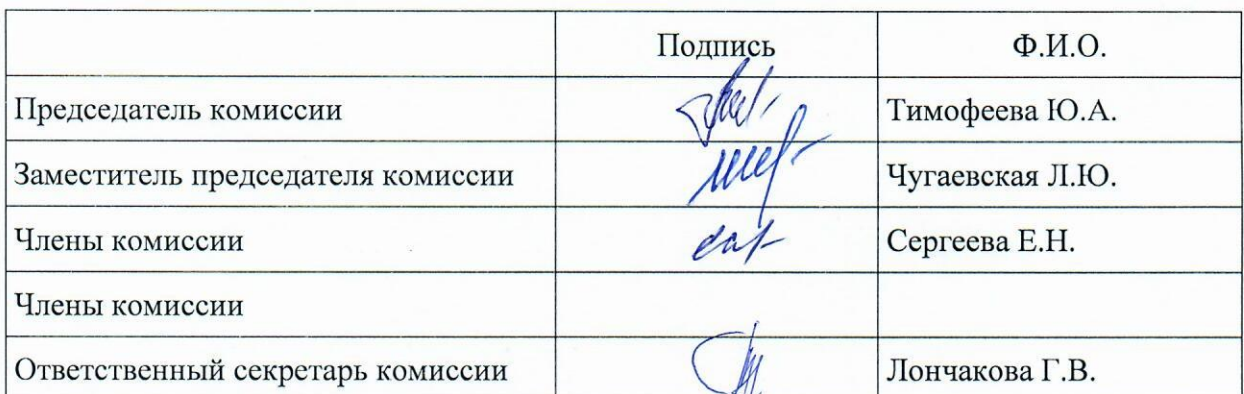 Подпись Ф.И.О.
Председатель комиссии Тимофеева Ю.А.
Заместитель председателя комиссии Чугаевская Л.Ю.
Члены комиссии Сергеева Е.Н.
Члены комиссии
Ответственный секретарь комиссии Лончакова Г.В.